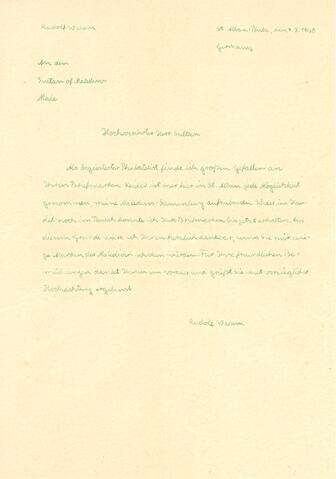 Rudolf
St. Alban
Germany
An den
Sultan of
Male
Hochverehrter Herr Sultan
Als begeisterter Philatelist finde ich großen Gefallen an
Ihren Briefmarken. Leider ist mir hier in St. Alban jede Möglichkeit
genommen meine Malediven-Sammlung aufzubauen. Weder im Han-
del noch im Tausch konnte ich Ihre Briefmarken bis jetzt erhalten. Aus
diesem Grunde wäre ich Ihnen herzlich dankbar, wenn Sie mir eini-
ge Marken der Malediven senden würden. Für Ihre freundlichen Be-
mühungen dankt Ihnen im voraus und grüßt Sie mit vorzüglicher
Hochachtung ergebenst
Rudolf